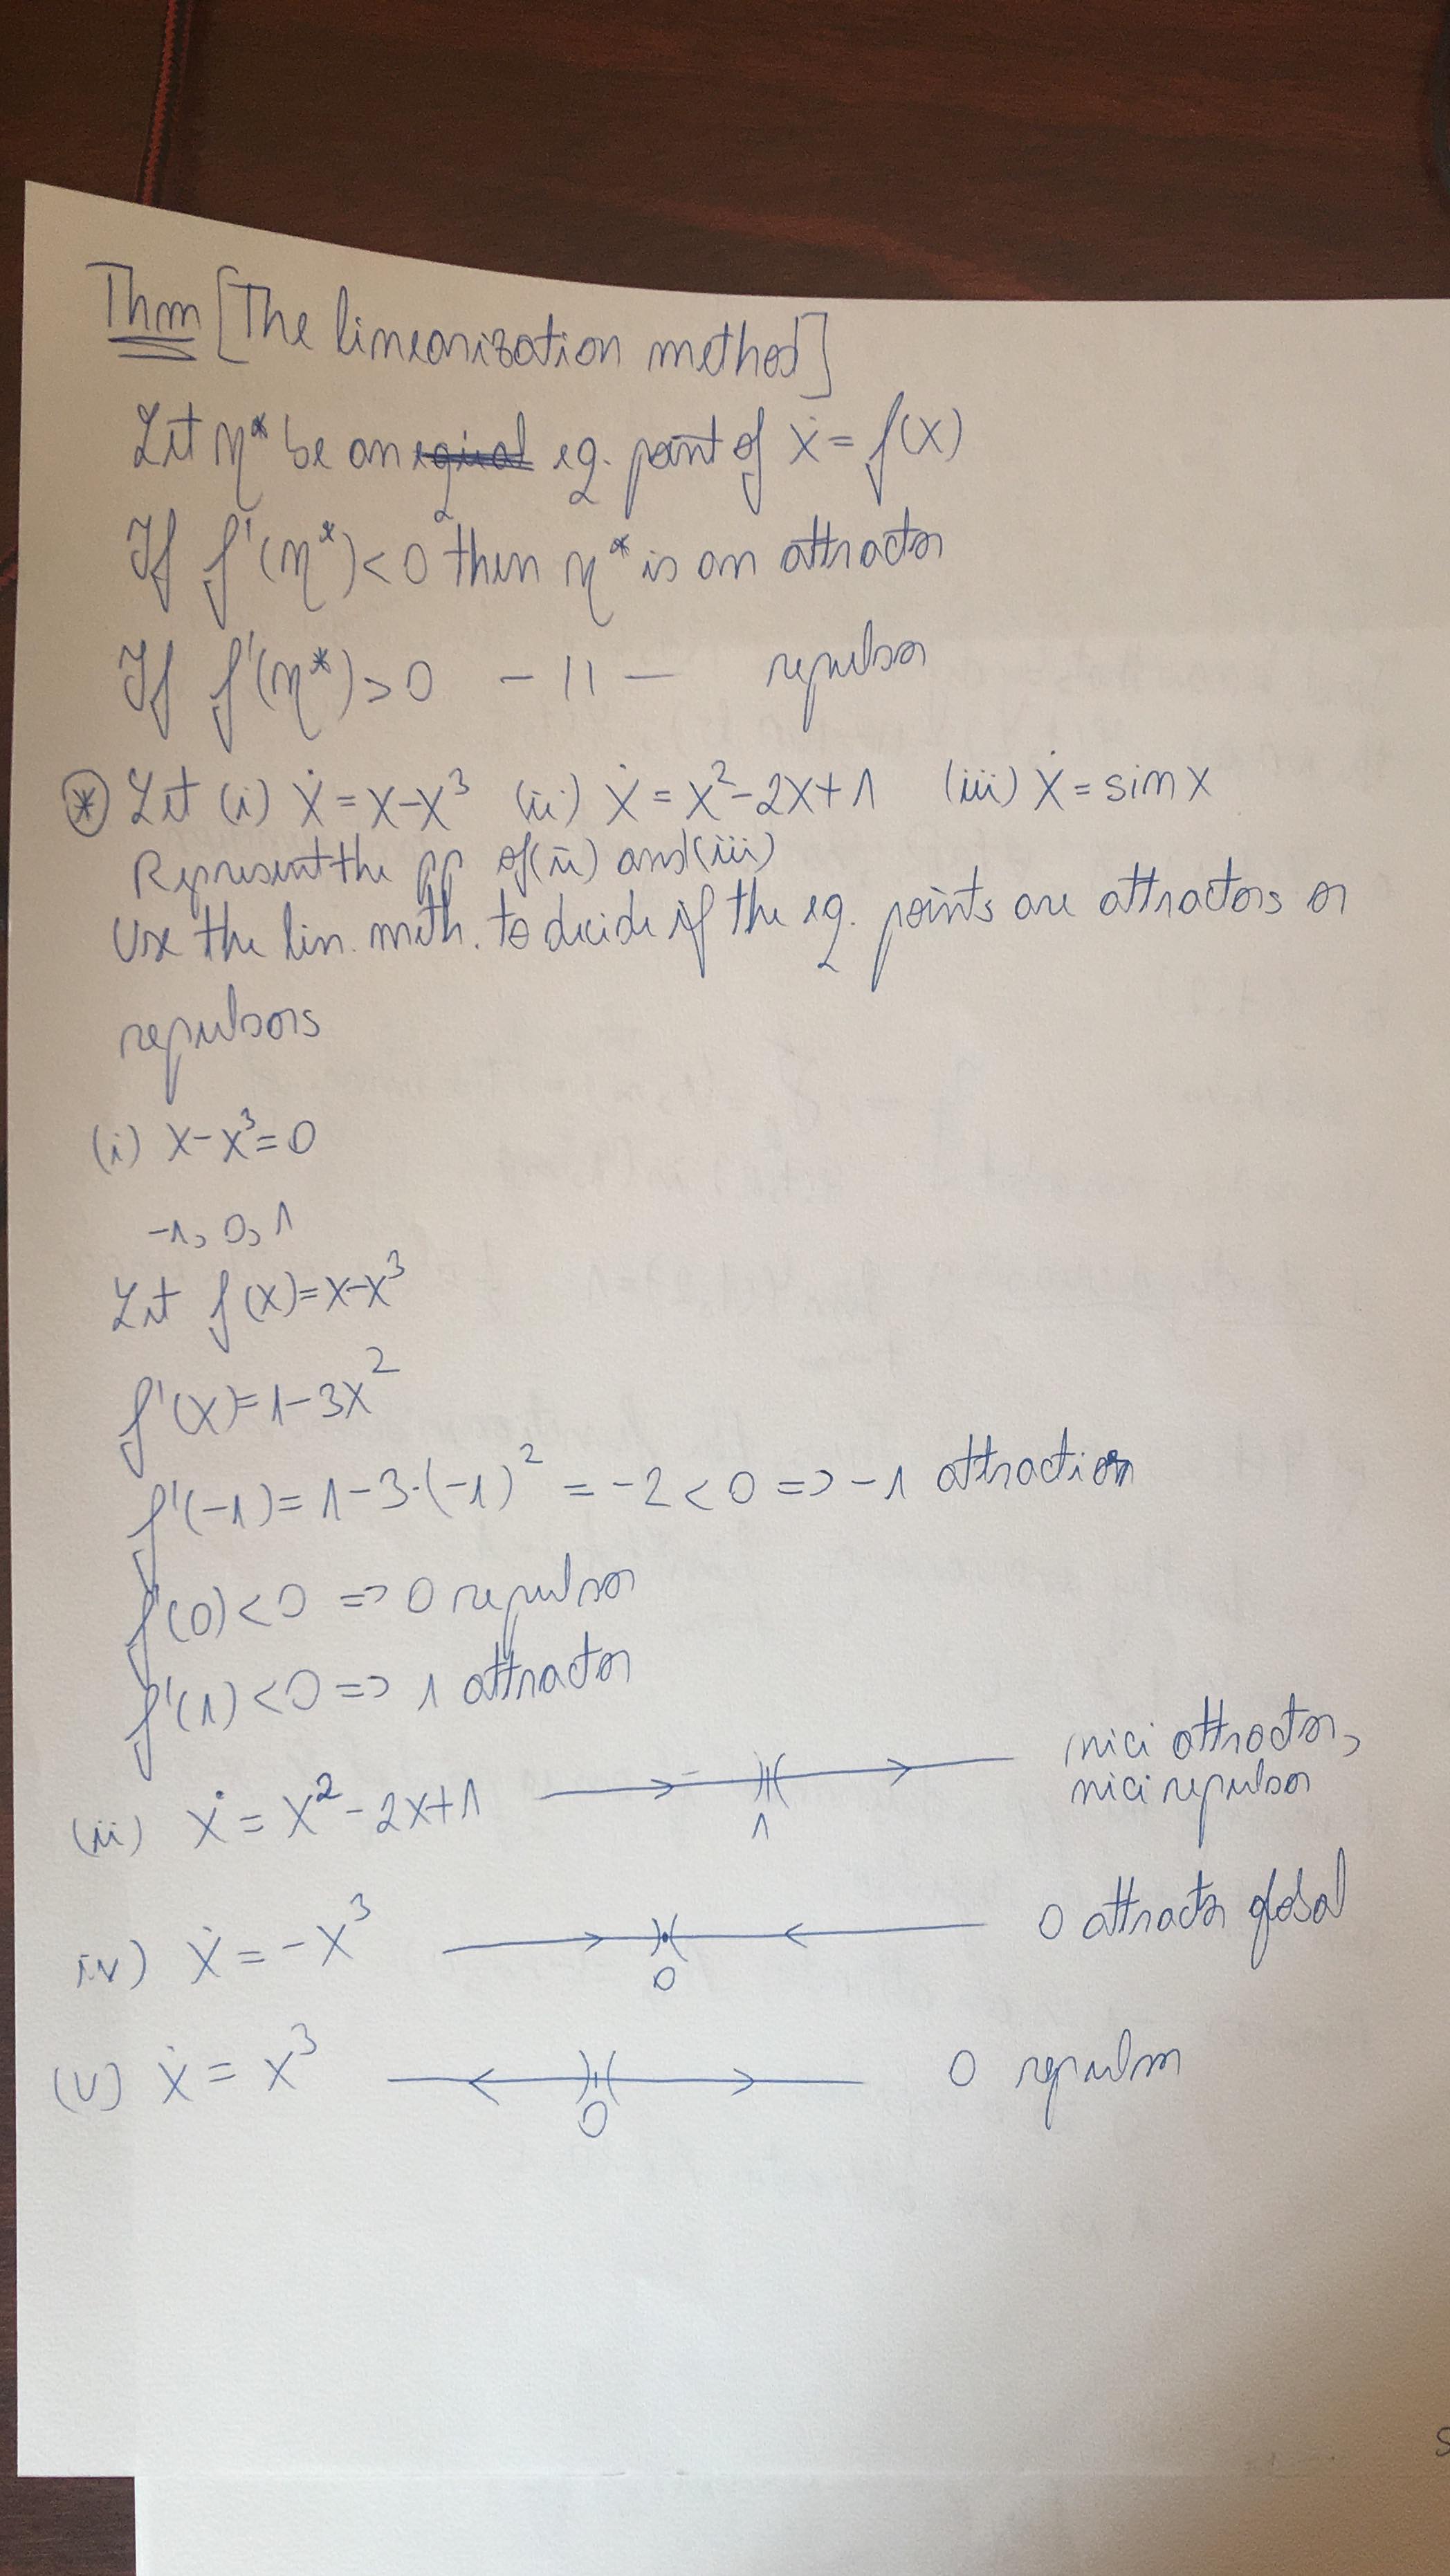 Thm [The linearization method]
Let η* be an eq. point of ẋ = f(x)
If f'(η*) < 0 then η* is an attractor
If f'(η*) > 0 - 11 - repulsor
(*) Let (i) ẋ = x - x³ (ii) ẋ = x² - 2x + 1 (iii) ẋ = sin x
Represent the pp of (ii) and (iii)
Use the lin. meth. to decide if the eq. points are attractors or
repulsors
(i) x - x³ = 0
-1, 0, 1
Let f(x) = x - x³
f'(x) = 1 - 3x²
f'(-1) = 1 - 3·(-1)² = -2 < 0 => -1 attraction
f'(0) < 0 => 0 repulsor
f'(1) < 0 => 1 attractor
(ii) ẋ = x² - 2x + 1
1
nici attractor,
nici repulsor
iv) ẋ = -x³
0
0 attractor global
(v) ẋ = x³
0
0 repulsor